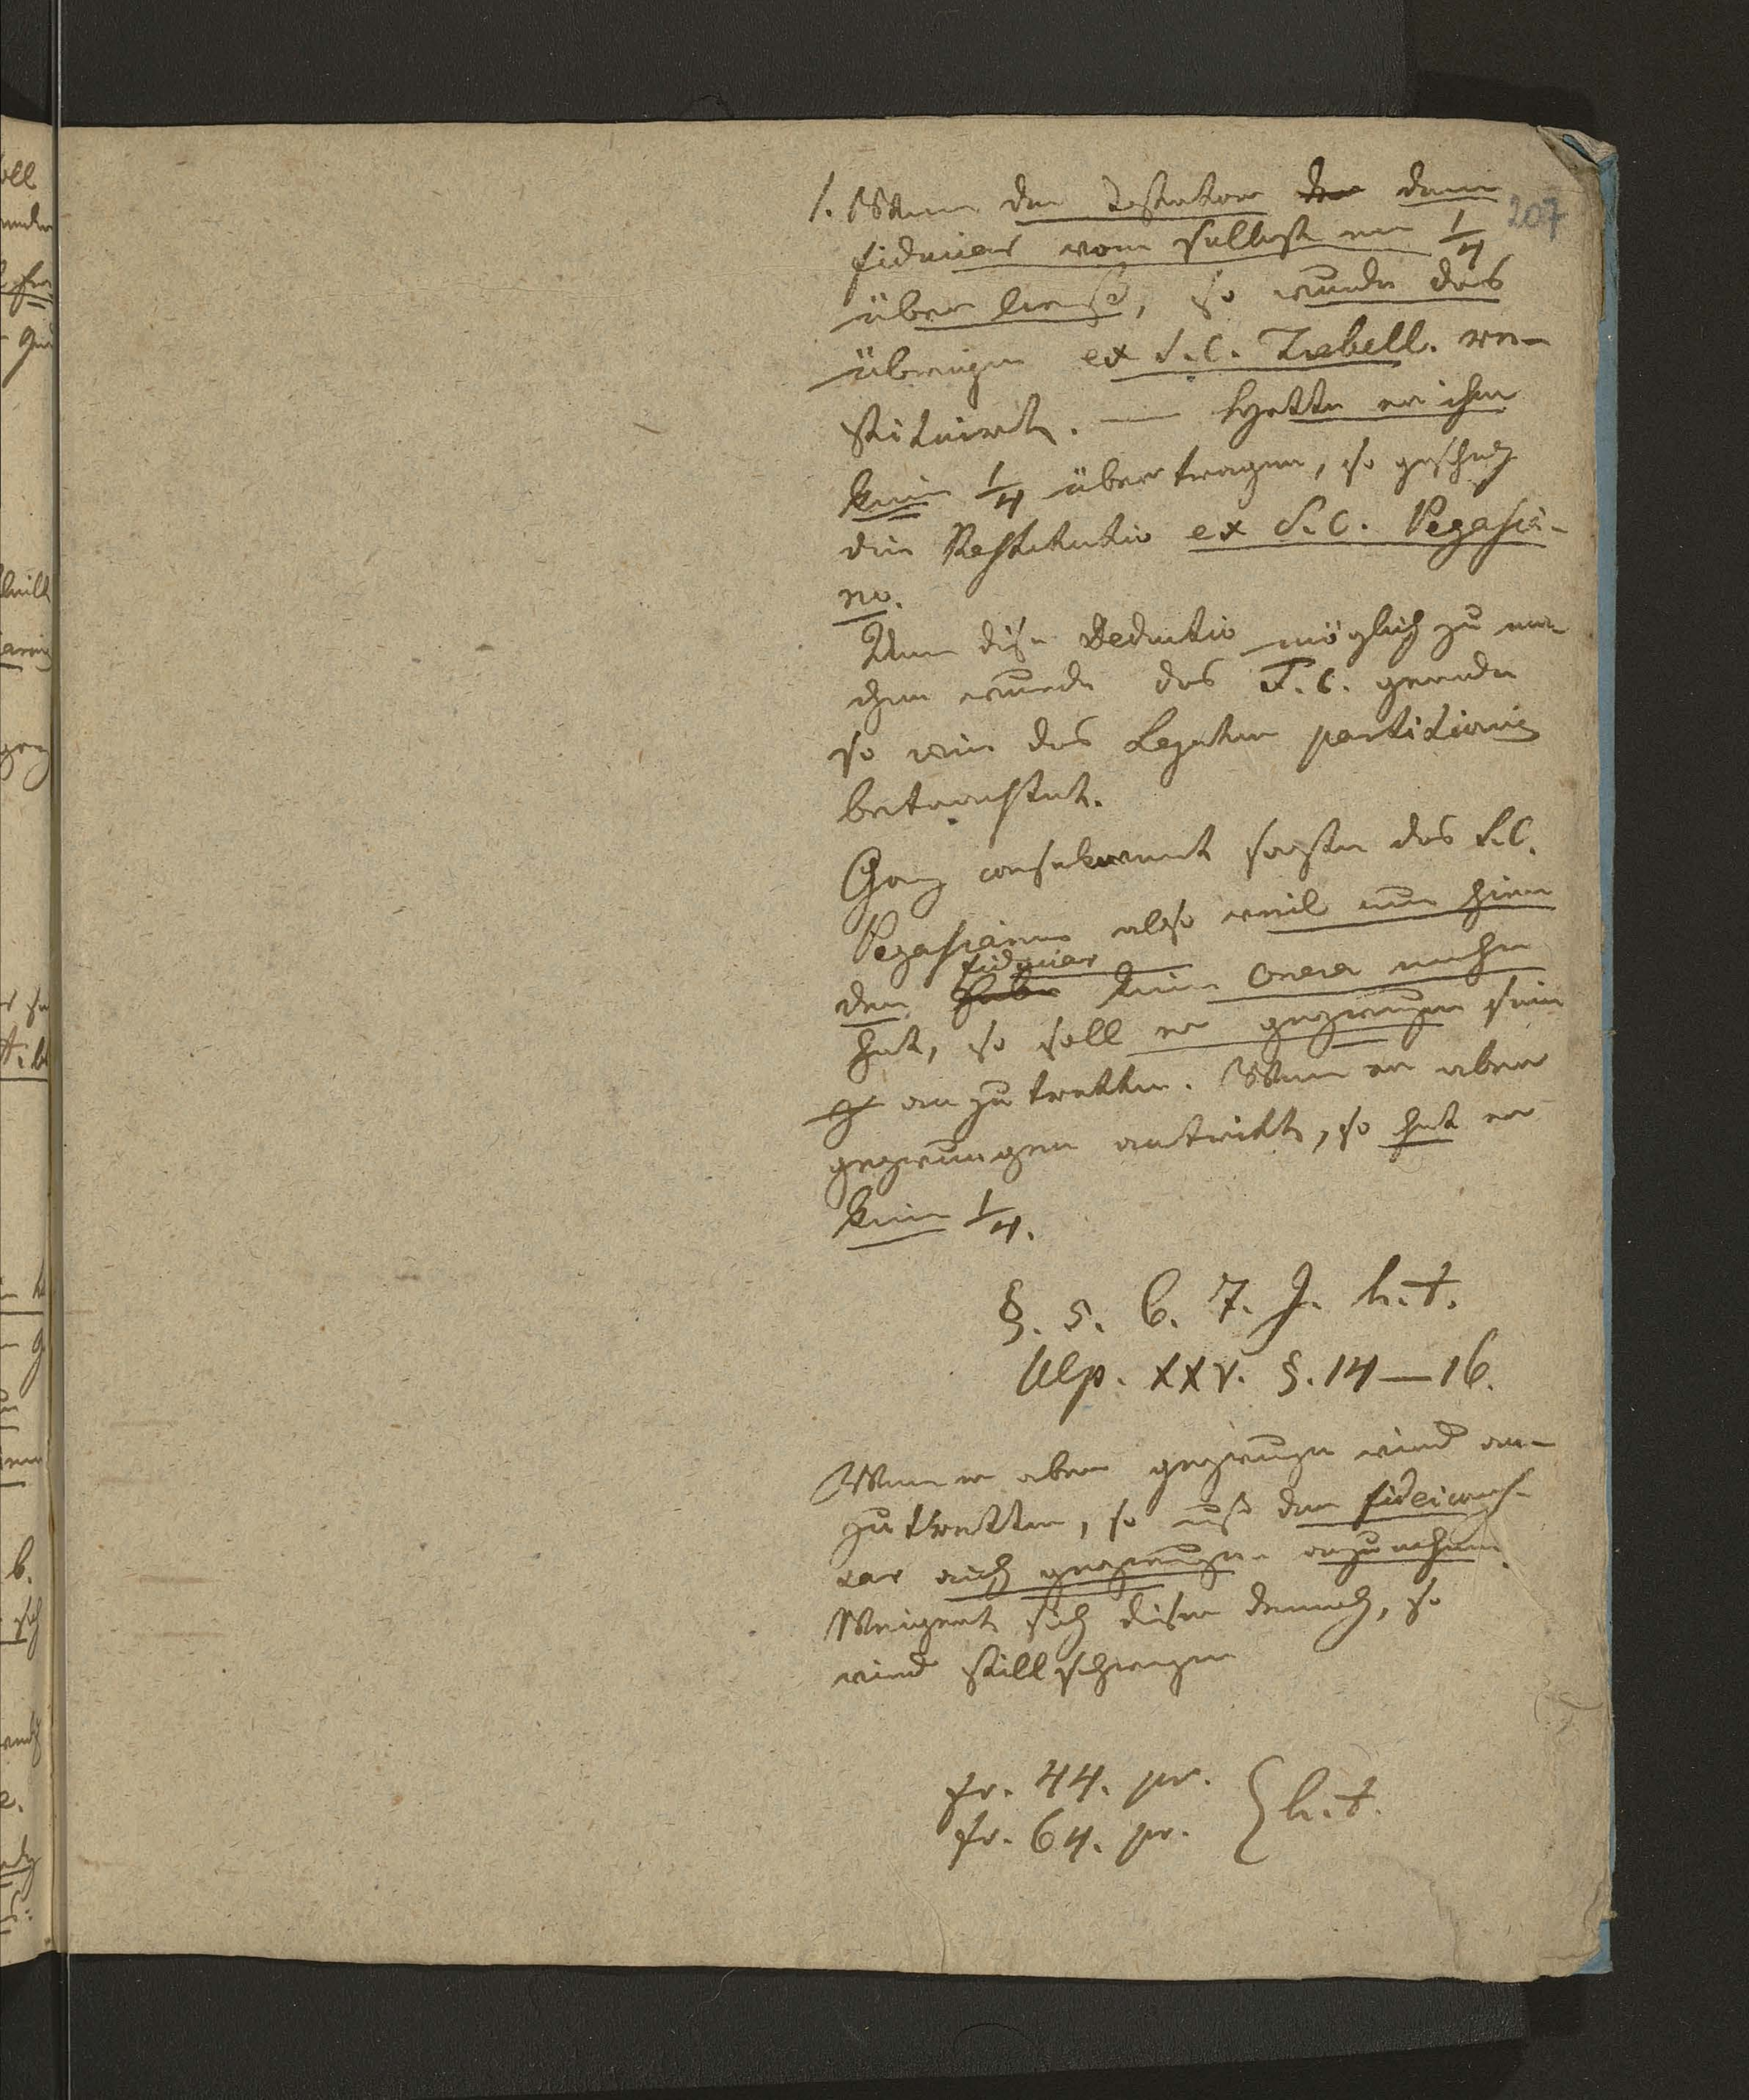 207
1. Wenn der Testator der dem
fiduciar von selbst ein 1/4
über ließ, so wurde das
übrige ex S.C. Trebell. re-
stituirt. — Hatte er ihm
kein 1/4 übertragen, so geschah
die Restitutio ex S.C. Pegasia-
no.
Um diese Deductio möglich zu ma-
chen wurde das F.C. gerade
so wie das Legatum partitionis
betrachtet.
Ganz consequent sagte das S.C.
Pegasianum also weil nun hier
der fiduciar kein onera mehr
hat, so soll er gezwungen sein
anzutretten. Wenn er aber
gezwungen antritt, so hat er
kein 1/4.
§. 5. 6. 7. J. h.t.
Ulp. XXV. §. 14—16.
Wenn er aber gezwungen wird an-
zutretten, so muß der fideicomis-
sar auch gezwungen anzunehmen.
Weigert sich dieser dennoch, so
wird stillschweigen
fr. 44. pr.
fr. 64. pr. } h.t.